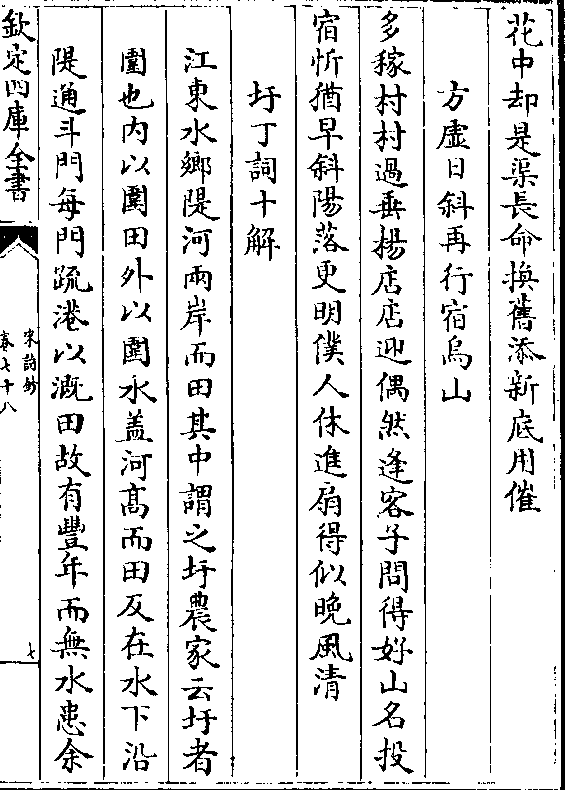 花中却是渠長命換舊添新底用催
方虚日斜再行宿烏山
多稼村村過垂揚店店迎偶然逢客子問得好山名投
宿忻猶早斜陽落更明僕人休進扇得似晚風清
圩丁詞十解
江東水鄉隄河兩岸而田其中謂之圩農家云圩者
圍也内以圍田外以圍水盖河髙而田反在水下沿
隄通斗門每門疏港以溉田故有豐年而無水患余
欽定四庫全書
宋詩鈔
卷七十八
七